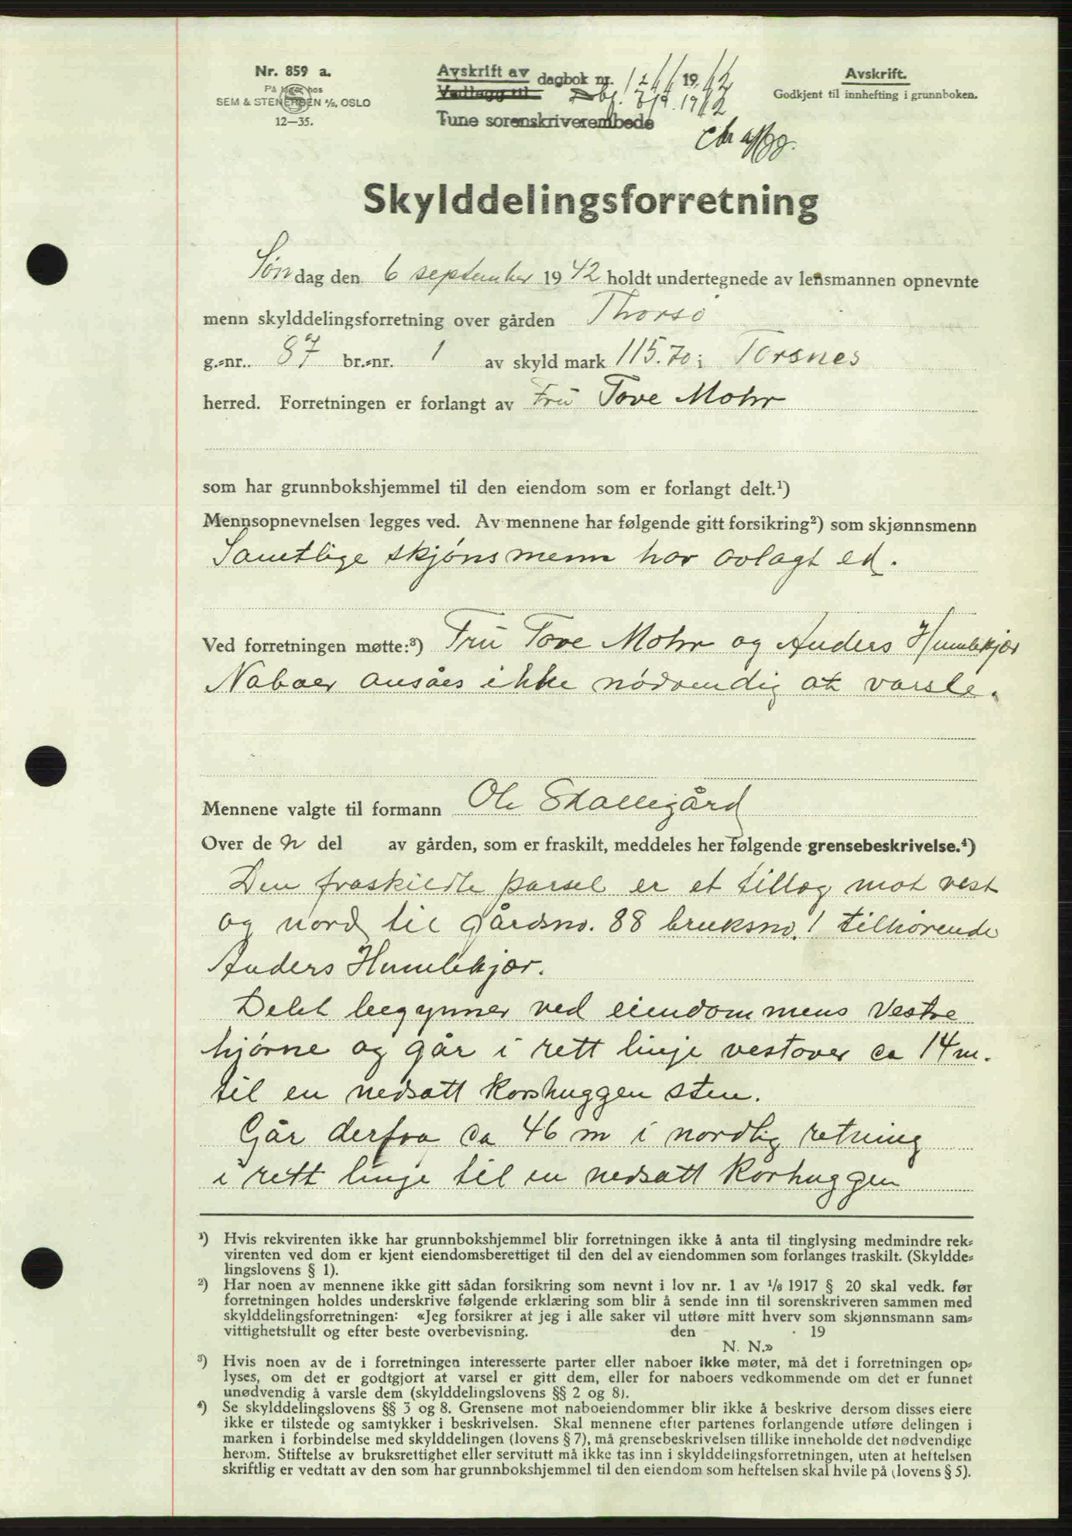 Nr. 859 a.
På lager hos
SEM & STENERSEN A/S, OSLO
12—35.
Avskrift av
Vedlegg til
dagbok nr. 1211 1942
Tune sorenskriverembede
Avskrift.
Godkjent til innhefting i grunnboken.
Skylddelingsforretning
Søndag den 6 september 1942 holdt undertegnede av lensmannen opnevnte
menn skylddelingsforretning over gården Thorsø
g.-nr. 87 br.-nr. 1 av skyld mark 115.70 i Torsnes
herred. Forretningen er forlangt av Fru Tove Mohr
som har grunnbokshjemmel til den eiendom som er forlangt delt.¹)
Mennsopnevnelsen legges ved. Av mennene har følgende gitt forsikring²) som skjønnsmenn
Samtlige skjønsmenn har avlagt ed.
Ved forretningen møtte:³) Fru Tove Mohr og Anders Humlekjær
Naboer ansåes ikke nødvendig at varsle.
Mennene valgte til formann Ole Skallegård
Over de n del av gården, som er fraskilt, meddeles her følgende grensebeskrivelse.⁴)
Den fraskildte parsel er et tillæg mot vest
og nord til gårdsno. 88 bruksno. 1 tilhørende
Anders Humlekjær.
Delet begynner ved eiendommens vestre
hjørne og går i rett linje vestover ca 14 m.
til en nedsatt korshuggen sten.
Går derfra ca 46 m i nordlig retning
i rett linje til en nedsatt korhuggen
¹) Hvis rekvirenten ikke har grunnbokshjemmel blir forretningen ikke å anta til tinglysing medmindre rek-
virenten ved dom er kjent eiendomsberettiget til den del av eiendommen som forlanges fraskilt. (Skyldde-
lingslovens § 1).
²) Har noen av mennene ikke gitt sådan forsikring som nevnt i lov nr. 1 av 1/6 1917 § 20 skal vedk. før
forretningen holdes underskrive følgende erklæring som blir å sende inn til sorenskriveren sammen med
skylddelingsforretningen: «Jeg forsikrer at jeg i alle saker vil utføre mitt hverv som skjønnsmann sam-
vittighetsfullt og efter beste overbevisning. den 19
N. N.»
³) Hvis noen av de i forretningen interesserte parter eller naboer ikke møter, må det i forretningen op-
lyses, om det er godtgjort at varsel er gitt dem, eller for naboers vedkommende om det er funnet
unødvendig å varsle dem (skylddelingslovens §§ 2 og 8).
⁴) Se skylddelingslovens §§ 3 og 8. Grensene mot naboeiendommer blir ikke å beskrive dersom disses eiere
ikke er tilstede og samtykker i beskrivelsen. Skal mennene efter partenes forlangende utføre delingen i
marken i forbindelse med skylddelingen (lovens § 7), må grensebeskrivelsen tillike inneholde det nødvendige
herom. Stiftelse av bruksrettighet eller servitutt må ikke tas inn i skylddelingsforretningen, uten at heftelsen
skriftlig er vedtatt av den som har grunnbokshjemmel til den eiendom som heftelsen skal hvile på (lovens § 5).